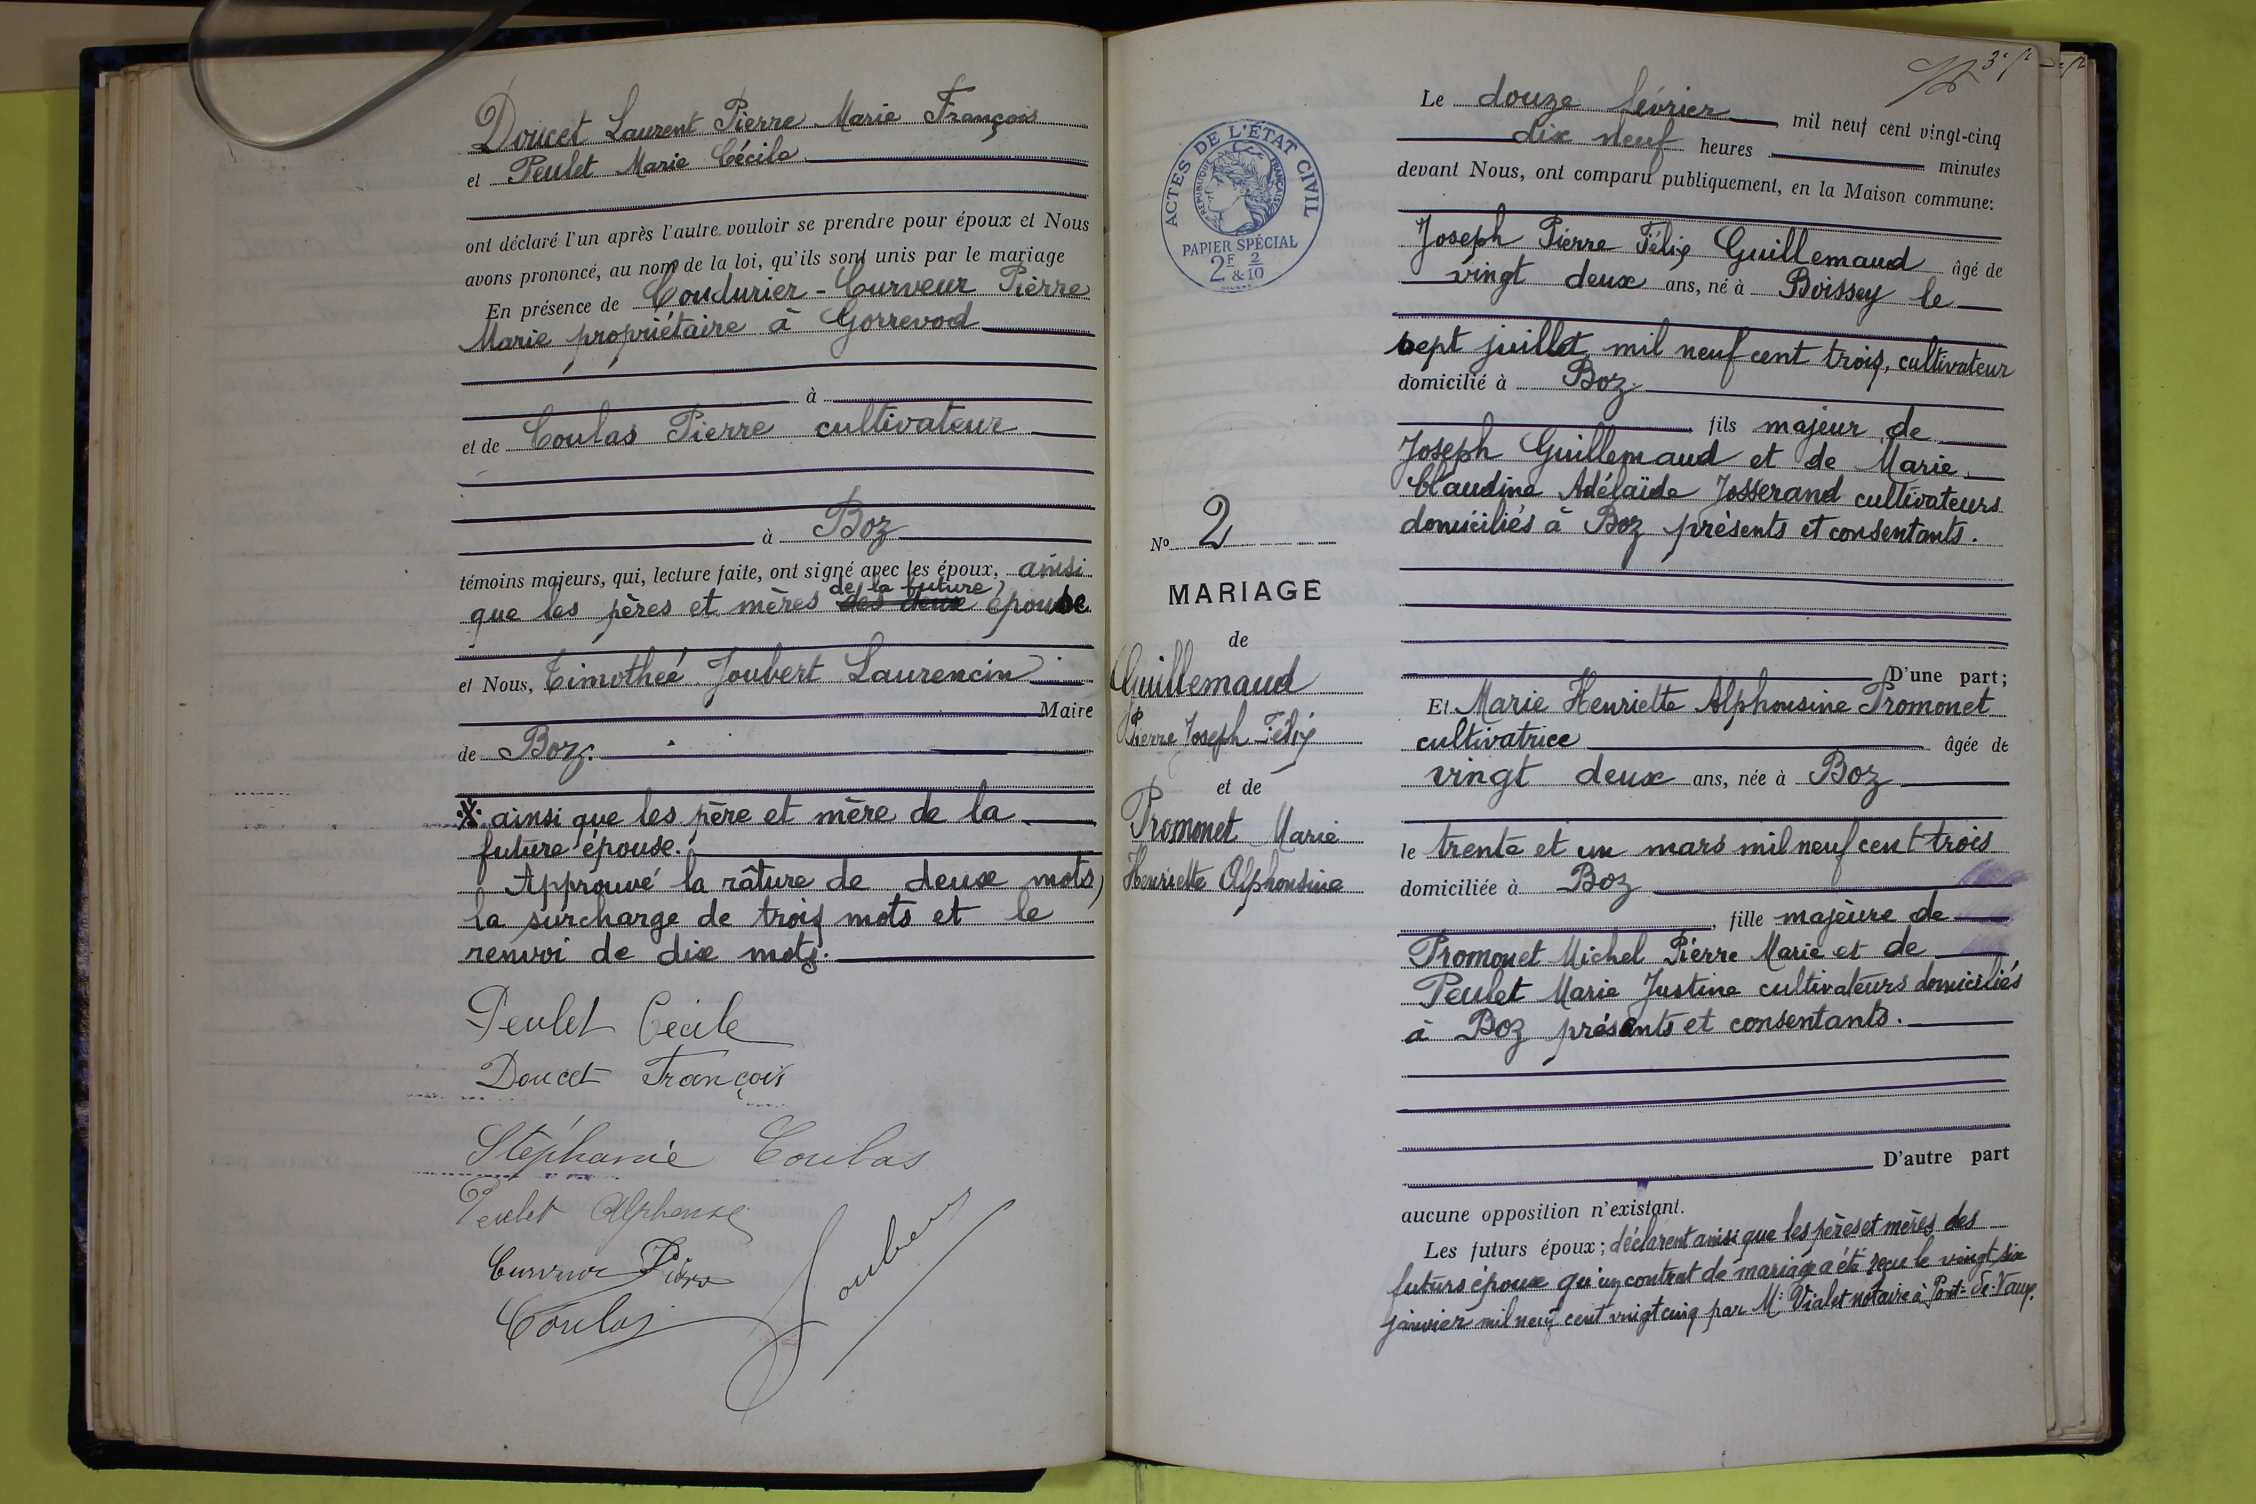 Doucet Laurent Pierre Marie François
et Peulet Marie Cécile
ont déclaré l'un après l'autre vouloir se prendre pour époux et Nous
avons prononcé, au nom de la loi, qu'ils sont unis par le mariage
En présence de Coudurier-Curveur Pierre
Marie propriétaire à Gorrevod
à
et de Coulas Pierre cultivateur
à Boz
témoins majeurs, qui, lecture faite, ont signé avec les époux, ainsi
de la future
que les pères et mères des deux épouse
et Nous, Timotheé Joubert Laurencin
Maire
de Boz.
ainsi que les père et mère de la
future épouse.
Approuvé la râture de deux mots,
la surcharge de trois mots et le
renvoi de dix mots.
Peulet Cécile
Doucet François
Stéphanie Coulas
Peulet Alphonse
Curveur Pierre
Coulas
Joubert
3e
ACTES DE L'ÉTAT CIVIL
RÉPUBLIQUE FRANÇAISE
PAPIER SPÉCIAL
2F & 2/10
No 2
MARIAGE
de
Guillemaud
Pierre Joseph Félix
et de
Promonet Marie
Henriette Alphonsine
Le douze février mil neuf cent vingt-cinq
dix neuf heures minutes
devant Nous, ont comparu publiquement, en la Maison commune:
Joseph Pierre Félix Guillemaud âgé de
vingt deux ans, né à Boissey le
sept juillet mil neuf cent trois, cultivateur
domicilié à Boz
fils majeur de
Joseph Guillemaud et de Marie
Claudine Adélaïde Josserand cultivateurs
domiciliés à Boz présents et consentants.
D'une part;
Et Marie Henriette Alphonsine Promonet
cultivatrice âgée de
vingt deux ans, née à Boz
le trente et un mars mil neuf cent trois
domiciliée à Boz
fille majeure de
Promonet Michel Pierre Marie et de
Peulet Marie Justine cultivateurs domiciliés
à Boz présents et consentants.
D'autre part
aucune opposition n'existant.
Les futurs époux; déclarent ainsi que les pères et mères des
futurs époux qu'un contrat de mariage a été reçu le vingt six
janvier mil neuf cent vingt cinq par M. Vialet notaire à Pont-de-Vaux.